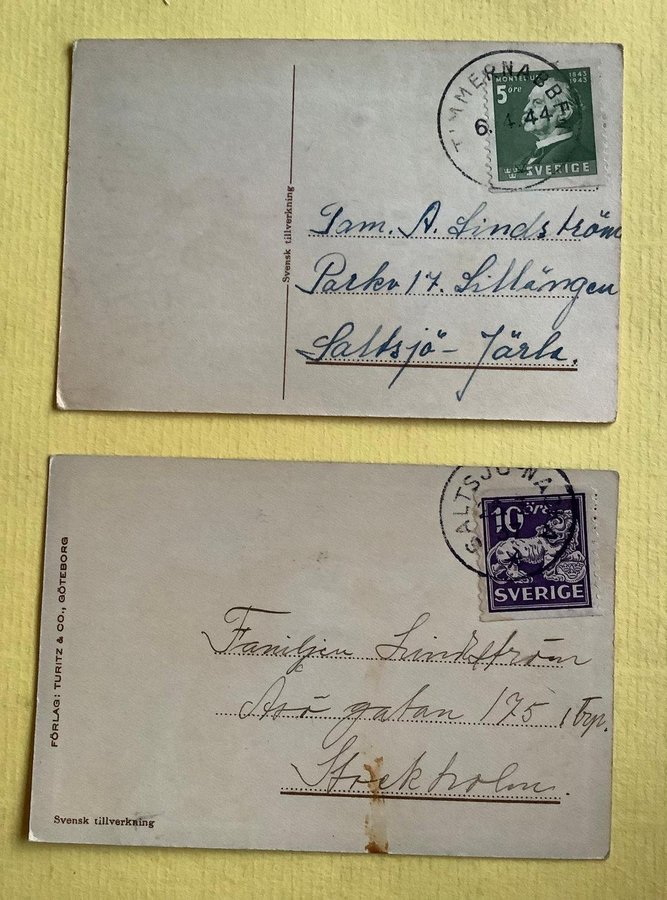 TIMMERNABBEN
6. 4.44
MONTELIUS
1843
1943
5 öre
SVERIGE
Svensk tillverkning
Fam. A. Lindström
Parkv 17. Lillängen
Saltsjö-Järla.
SALTSJÖ-NA
10 öre
SVERIGE
FÖRLAG: TURITZ & CO., GÖTEBORG
Familjen Lindström
Åsögatan 175, 1 trp.
Stockholm.
Svensk tillverkning